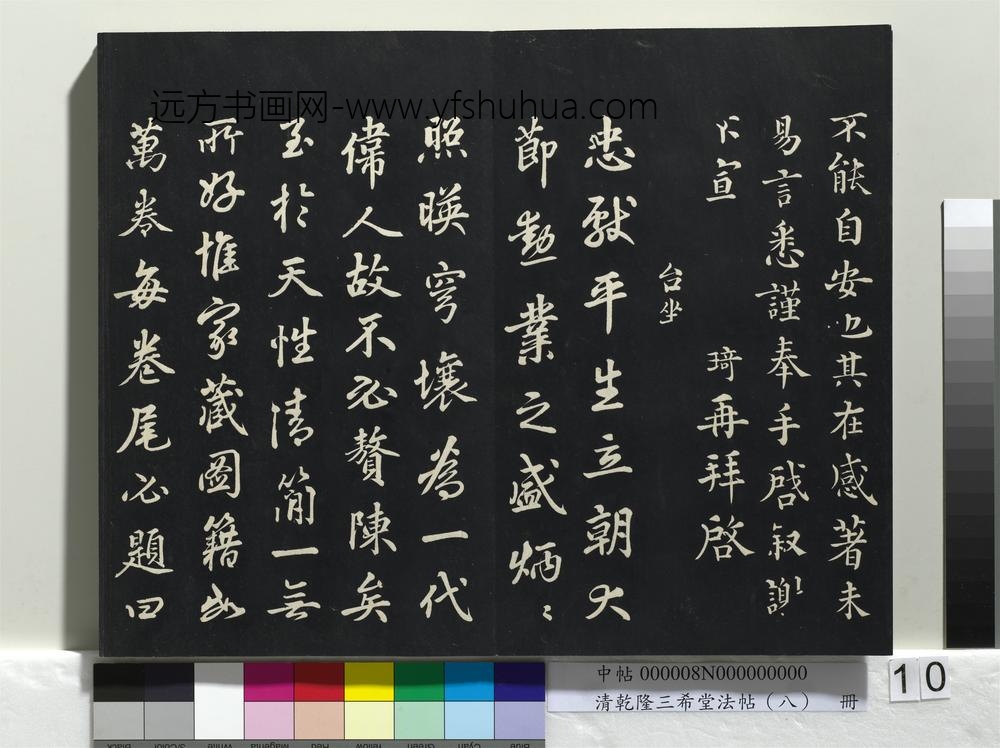 不能自安也其在感著未
易言悉謹奉手啓叙謝
不宣
琦再拜啓
台坐
忠獻平生立朝大
節勲業之盛炳〻
照暎穹壤為一代
偉人故不必贅陳矣
至於天性清簡一無
所好惟家藏圖籍
萬卷每卷尾必題曰
远方书画网-www.yfshuhua.com
中帖 000008N000000000
清乾隆三希堂法帖（八） 冊
10
Black
3/Color
White
Magenta
Red
Yellow
Green
Cyan
Blue